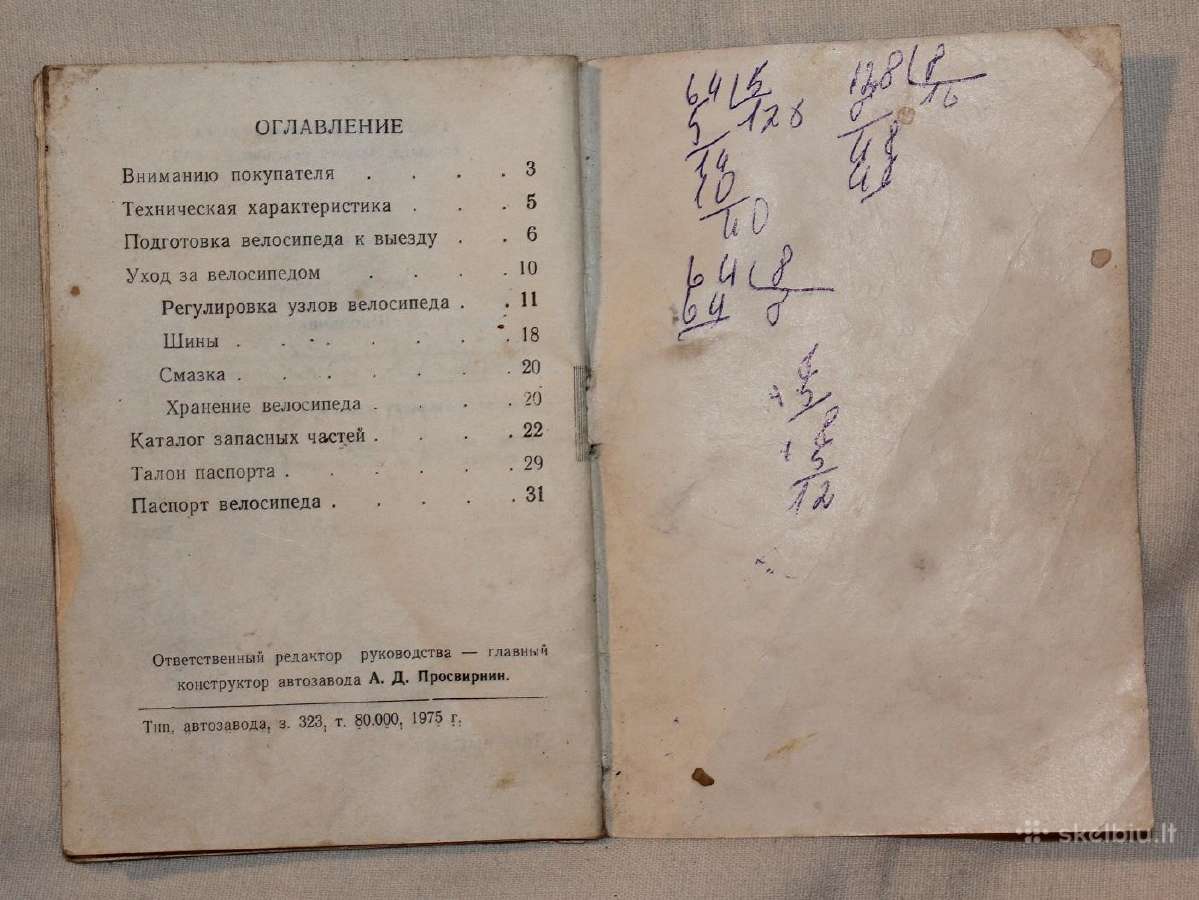 ОГЛАВЛЕНИЕ
Вниманию покупателя . . . . 3
Техническая характеристика . . . 5
Подготовка велосипеда к выезду . . 6
Уход за велосипедом . . . . 10
Регулировка узлов велосипеда . . 11
Шины . . . . . . . 18
Смазка . . . . . . 20
Хранение велосипеда . . . . 20
Каталог запасных частей . . . . 22
Талон паспорта . . . . . 29
Паспорт велосипеда . . . . . 31
Ответственный редактор руководства — главный
конструктор автозавода А. Д. Просвирнин.
Тип. автозавода, з. 323, т. 80.000, 1975 г.
64 5
5 128
14
10
40
128 8
8 16
48
48
64 8
64 8
+ 5
+ 8
5
12
skelbiu.lt